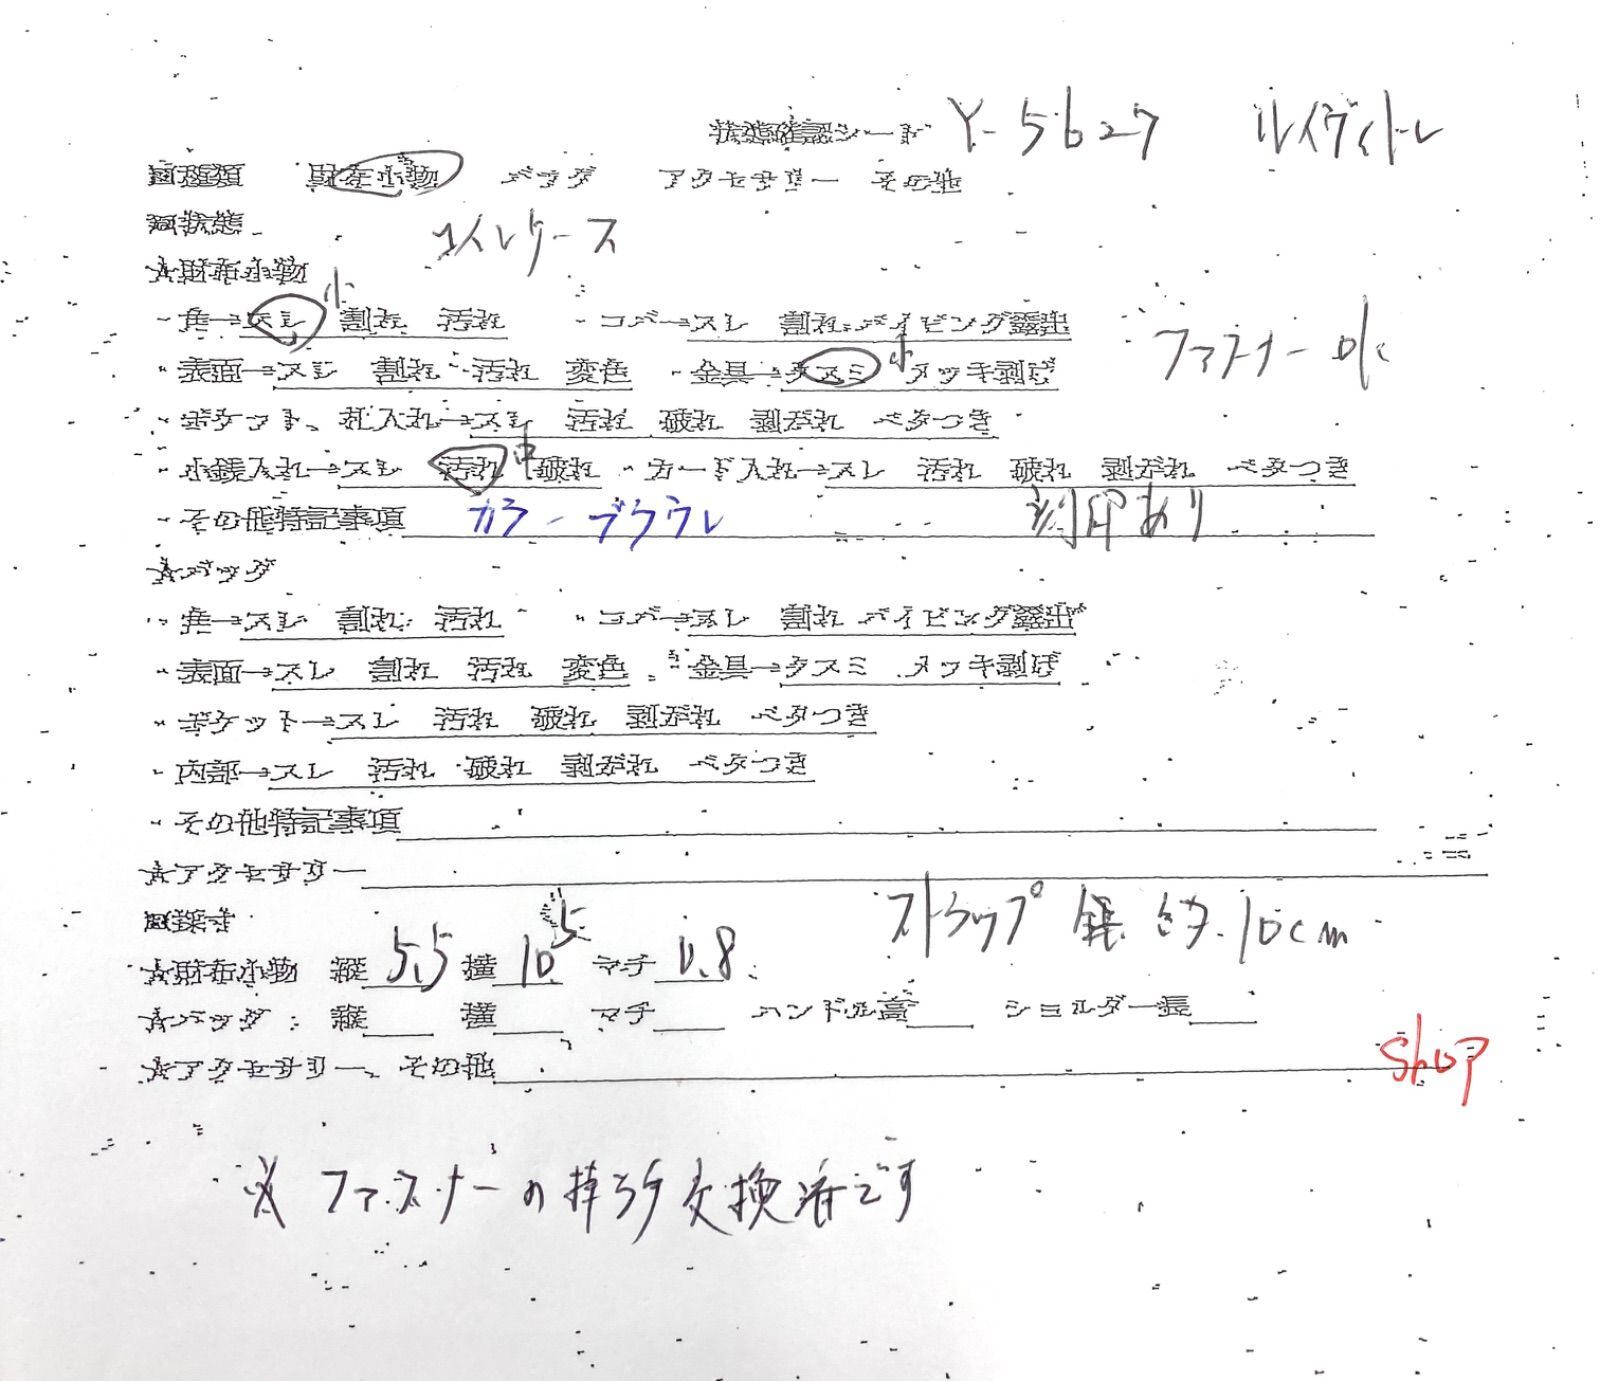 状態確認シート Y-5627 ルイヴィトン
■種類 財布小物 バッグ アクセサリー その他
■状態 コインケース
★財布小物
・角→スレ 小 割れ 汚れ ・コバ→スレ 割れ パイピング露出
・表面→スレ 割れ 汚れ 変色 ・金具→クスミ 小 メッキ剥げ ファスナー ok
・ポケット、札入れ→スレ 汚れ 破れ 剥がれ ベタつき
・小銭入れ→スレ 汚れ 中 破れ ・カード入れ→スレ 汚れ 破れ 剥がれ ベタつき
・その他特記事項 カラーブラウン 刻印あり
★バッグ
・角→スレ 割れ 汚れ ・コバ→スレ 割れ パイピング露出
・表面→スレ 割れ 汚れ 変色 ・金具→クスミ メッキ剥げ
・ポケット→スレ 汚れ 破れ 剥がれ ベタつき
・内部→スレ 汚れ 破れ 剥がれ ベタつき
・その他特記事項
★アクセサリー
■採寸 ストラップ 長 約 10cm
★財布小物 縦 5.5 横 10.5 マチ 0.8
★バッグ 縦 横 マチ ハンドル高 ショルダー長
★アクセサリー、その他 SHOP
※ ファスナーの持ち手交換済です